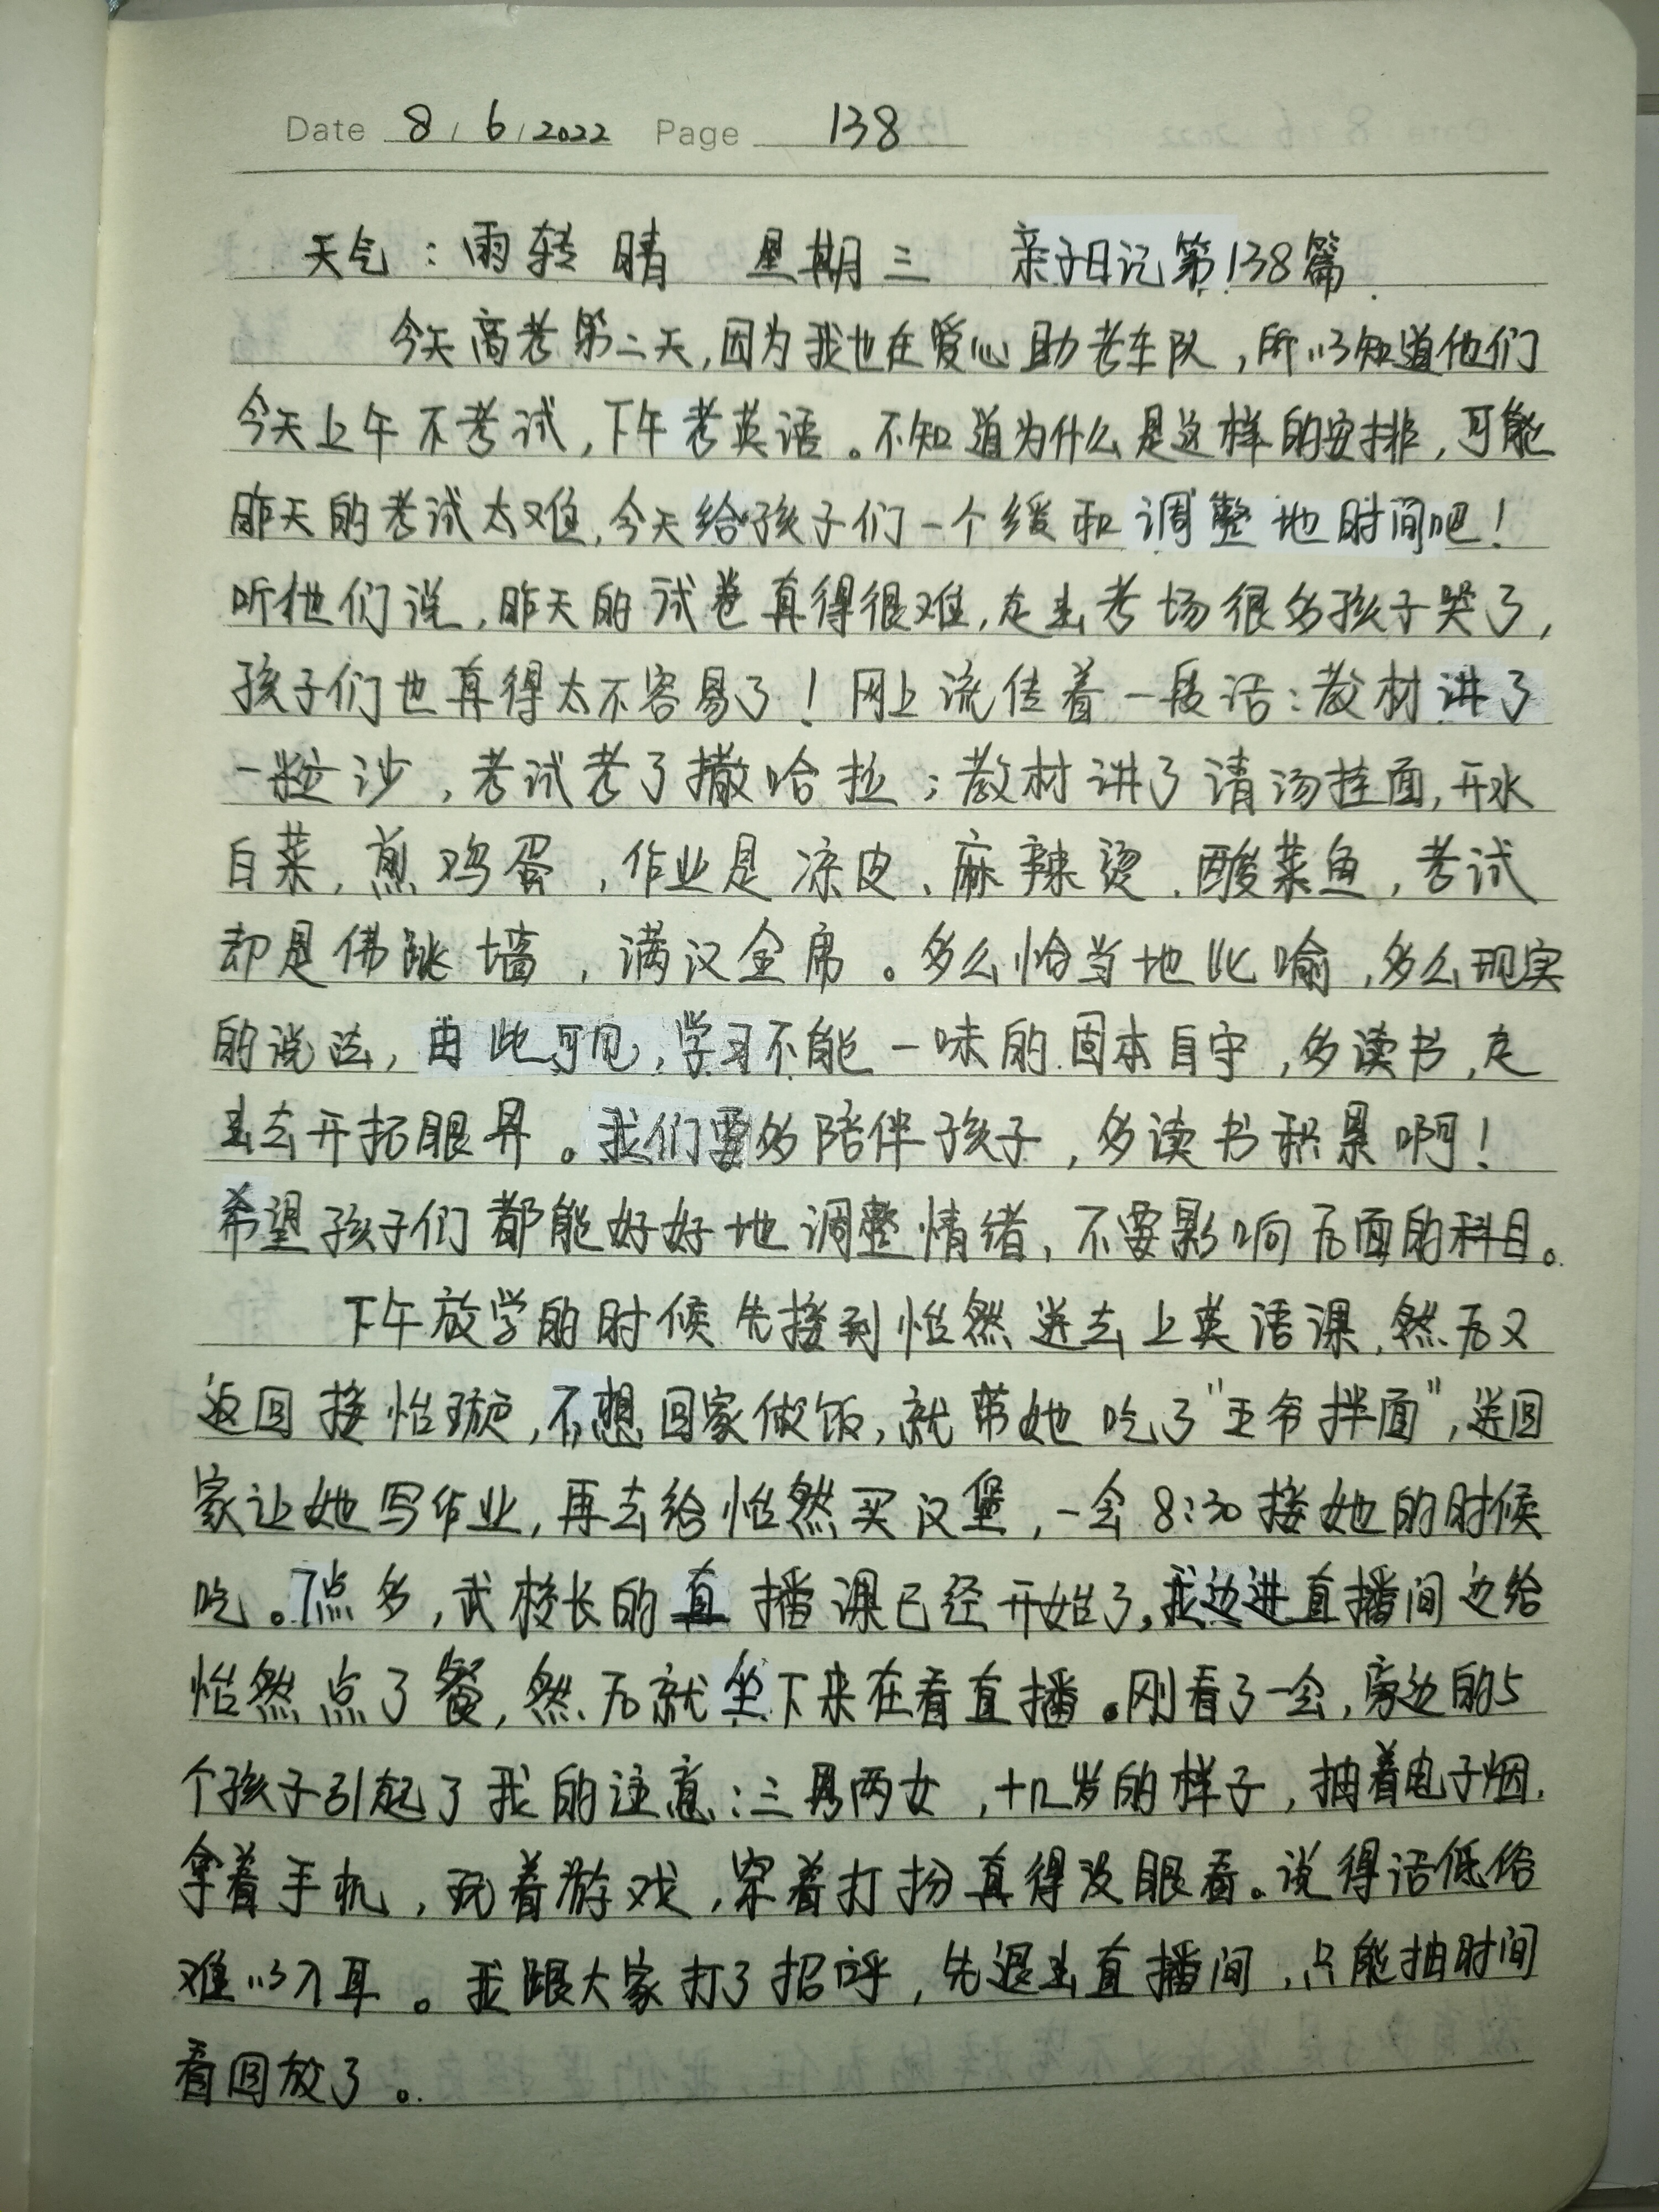 Date 8/6/2022 Page 138
天气：雨转晴 星期三 亲子日记第138篇.
今天高考第二天,因为我也在爱心助考车队,所以知道他们
今天上午不考试,下午考英语。不知道为什么是这样的安排,可能
昨天的考试太难,今天给孩子们一个缓和调整地时间吧!
听他们说,昨天的试卷真得很难,走出考场很多孩子哭了,
孩子们也真得太不容易了!网上流传着一段话:教材讲了
一粒沙,考试考了撒哈拉;教材讲了请汤挂面,开水
白菜,煎鸡蛋,作业是凉皮、麻辣烫、酸菜鱼,考试
却是佛跳墙,满汉全席。多么恰当地比喻,多么现实
的说法,由此可见,学习不能一味的固本自守,多读书,走
出去开拓眼界。我们要多陪伴孩子,多读书积累啊!
希望孩子们都能好好地调整情绪,不要影响后面的科目。
下午放学的时候先接到怡然送去上英语课,然后又
返回接怡璇,不想回家做饭,就带她吃了"王爷拌面",送回
家让她写作业,再去给怡然买汉堡,一会8:30接她的时候
吃。7点多,武校长的直播课已经开始了,我边进直播间边给
怡然点了餐,然后就坐下来在看直播。刚看了一会,旁边的5
个孩子引起了我的注意:三男两女,十几岁的样子,抽着电子烟,
拿着手机,玩着游戏,穿着打扮真得没眼看。说得话低俗
难以入耳。我跟大家打了招呼,先退出直播间,只能抽时间
看回放了。